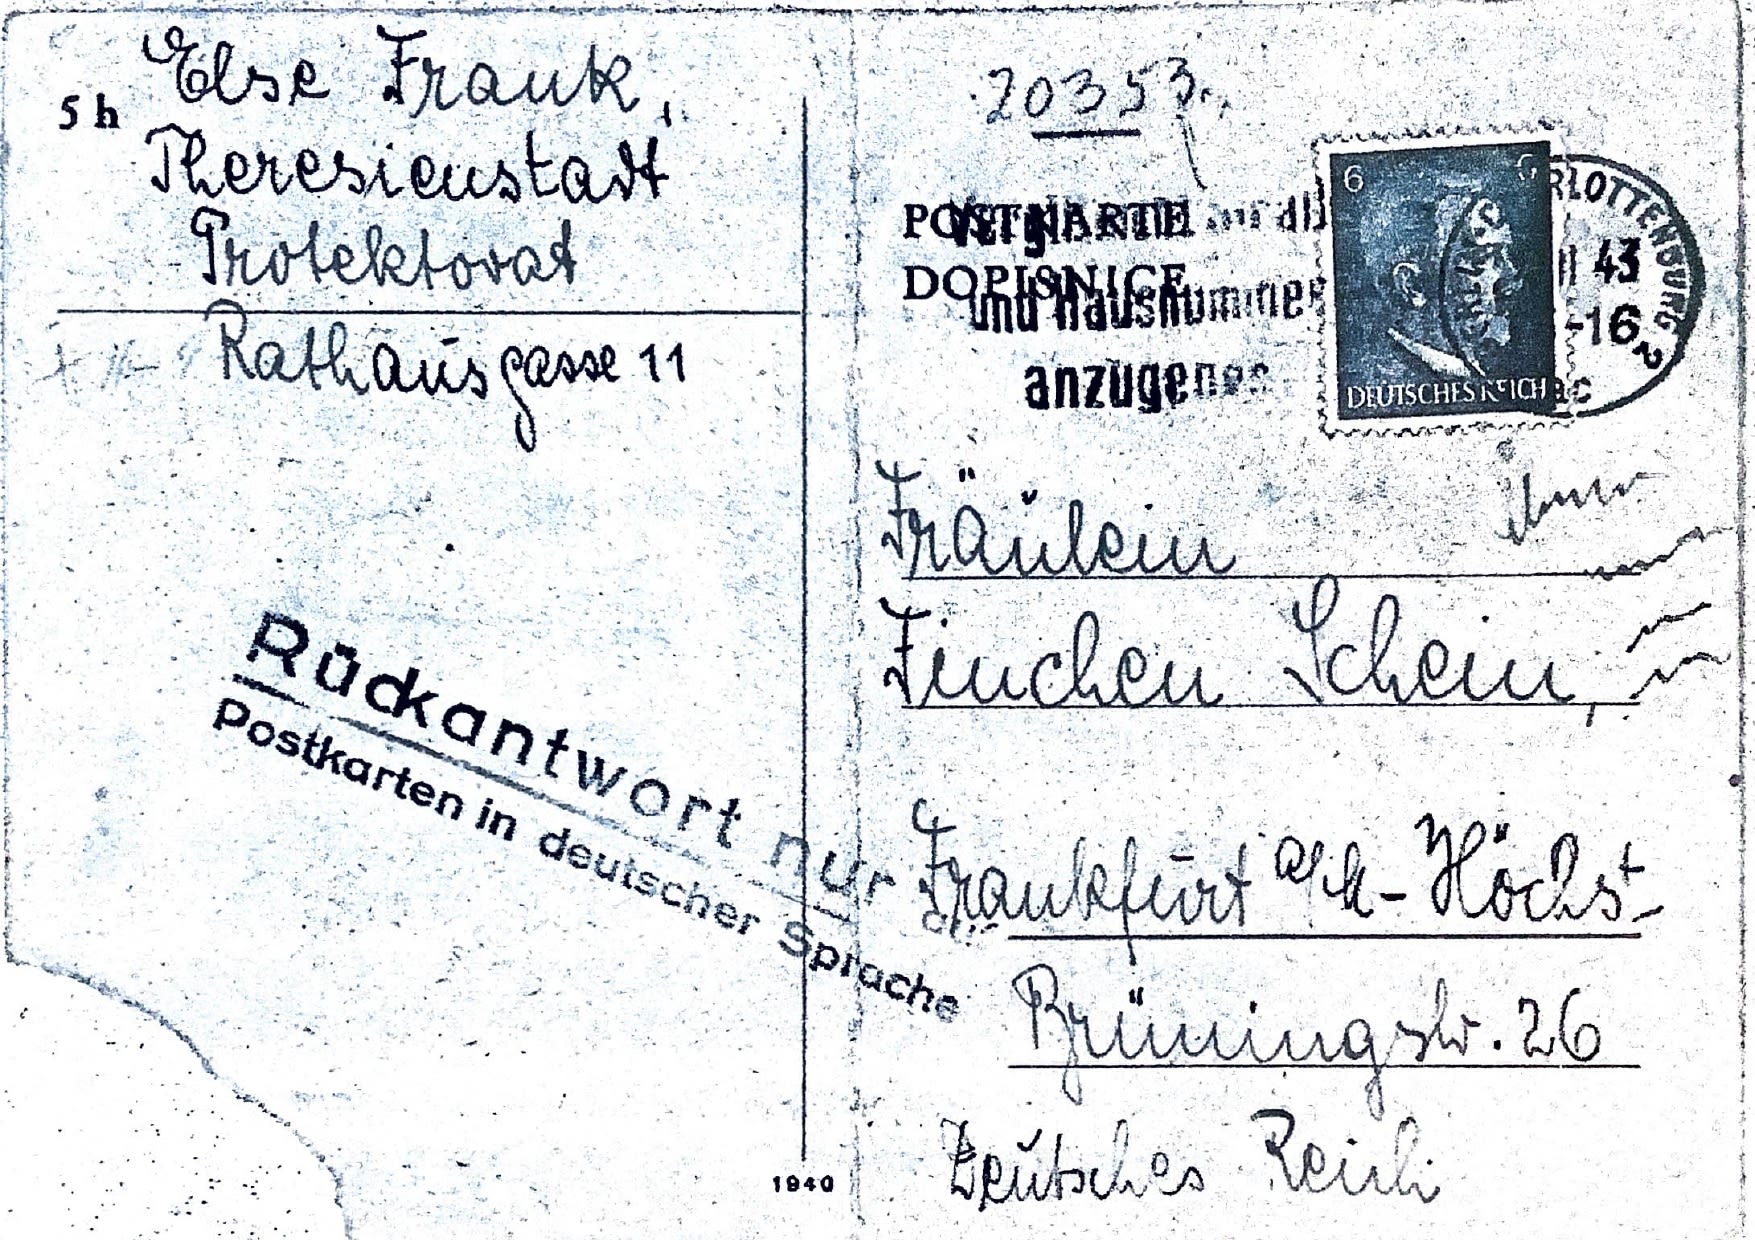 5 h
Else Frank,
Theresienstadt
Protektorat
Rathausgasse 11
20353.
POSTKARTE
DOPISNICE
und Hausnummer
anzugeben
6
DEUTSCHES REICH
RLOTTENBURG 2
43
-16
Fräulein
Finchen Schein,
Frankfurt a/M-Höchst
Brüningstr. 26
Deutsches Reich
Rückantwort nur
Postkarten in deutscher Sprache
1940